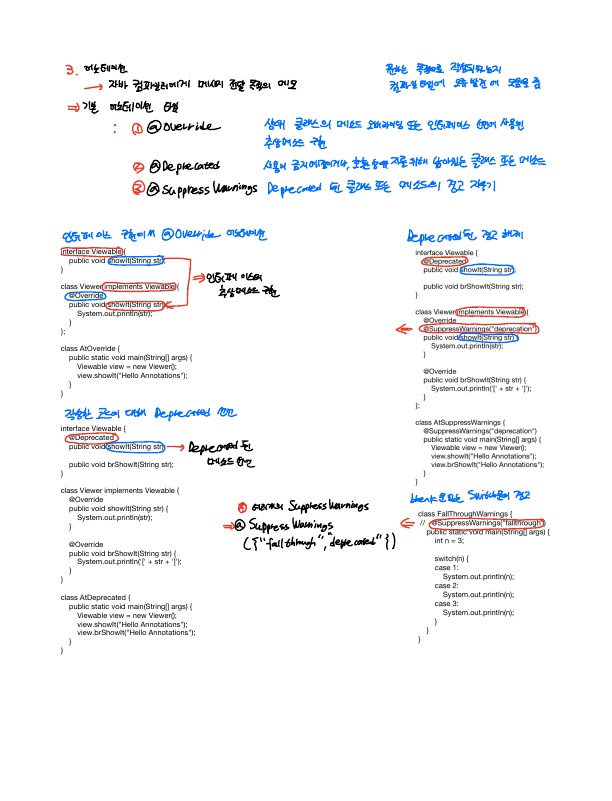 3. 어노테이션
→ 자바 컴파일러에게 메시지 전달 목적의 메모
원하는 목적으로 작성되었는지
컴파일 타임에 오류 발견에 도움을 줌
⇒ 기본 어노테이션 타입
: ① @Override 상위 클래스의 메소드 오버라이딩 또는 인터페이스 선언된
추상메소드 구현
② @Deprecated 사용이 금지 예정이거나, 호환성 유지를 위해 남아있는 클래스 또는 메소드
③ @SuppressWarnings Deprecated 된 클래스 또는 메소드의 경고 지우기
인터페이스 구현에서 @Override 어노테이션
interface Viewable {
public void showIt(String str);
}
class Viewer implements Viewable {
@Override
public void showIt(String str) {
System.out.println(str);
}
};
→ 인터페이스의
추상메소드 구현
class AtOverride {
public static void main(String[] args) {
Viewable view = new Viewer();
view.showIt("Hello Annotations");
}
}
작성한 코드에 대해 Deprecated 선언
interface Viewable {
@Deprecated
public void showIt(String str);
→ Deprecated 된
메소드 선언
public void brShowIt(String str);
}
class Viewer implements Viewable {
@Override
public void showIt(String str) {
System.out.println(str);
}
@Override
public void brShowIt(String str) {
System.out.println('[' + str + ']');
}
}
class AtDeprecated {
public static void main(String[] args) {
Viewable view = new Viewer();
view.showIt("Hello Annotations");
view.brShowIt("Hello Annotations");
}
}
여러개의 SuppressWarnings
⇒ @SuppressWarnings
({"fallthrough", "deprecated"})
Deprecated 된 경고 해제
interface Viewable {
@Deprecated
public void showIt(String str);
public void brShowIt(String str);
}
class Viewer implements Viewable {
@Override
@SuppressWarnings("deprecation")
public void showIt(String str) {
System.out.println(str);
}
@Override
public void brShowIt(String str) {
System.out.println('[' + str + ']');
}
};
class AtSuppressWarnings {
@SuppressWarnings("deprecation")
public static void main(String[] args) {
Viewable view = new Viewer();
view.showIt("Hello Annotations");
view.brShowIt("Hello Annotations");
}
}
break문 없는 Switch문의 경고
class FallThroughWarnings {
// @SuppressWarnings("fallthrough")
public static void main(String[] args) {
int n = 3;
switch(n) {
case 1:
System.out.println(n);
case 2:
System.out.println(n);
case 3:
System.out.println(n);
}
}
}